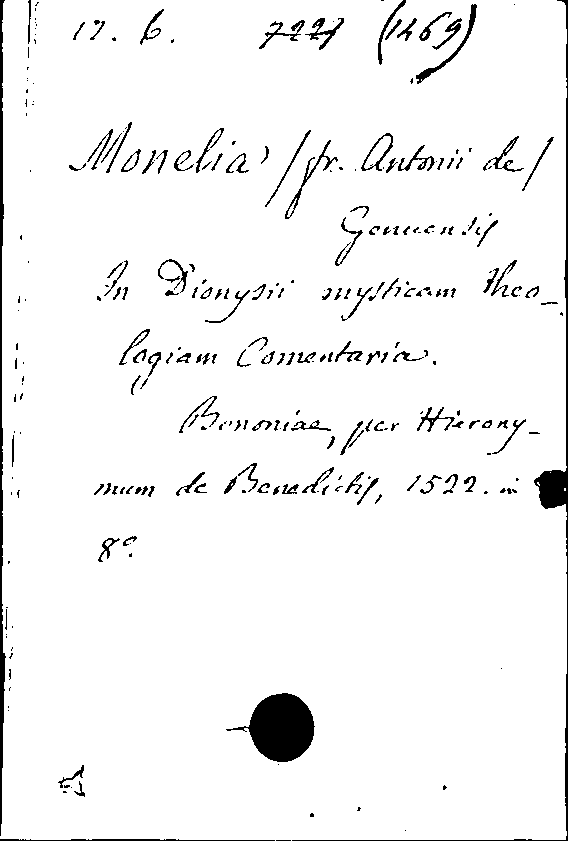 17. 6. 7227 (1469)
Monelia /fr. Antonii de/
Genuensis
In Dionysii mysticam theo-
logiam Comentaria.
Bononiae, per Hierony-
mum de Benedictis, 1522. in
8°.